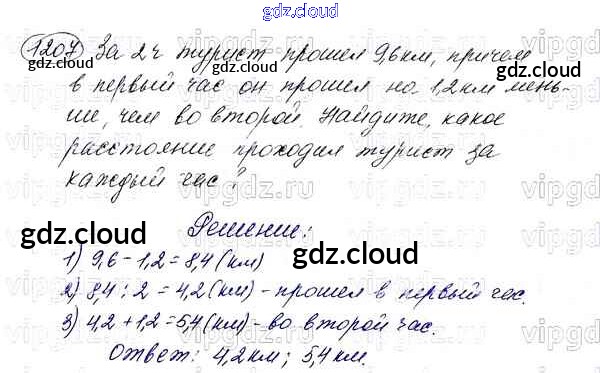 gdz.cloud
1207 За 2 ч турист прошел 9,6 км, причем
gdz.cloud gdz.cloud
в первый час он прошел на 1,2 км мень-
ше, чем во второй. Найдите, какое
расстояние проходил турист за
каждый час?
vipgdz.ru
Решение:
gdz.cloud gdz.cloud
1) 9,6 - 1,2 = 8,4 (км)
2) 8,4 : 2 = 4,2 (км) - прошел в первый час.
3) 4,2 + 1,2 = 5,4 (км) - во второй час.
Ответ: 4,2 км; 5,4 км.
gdz.cloud